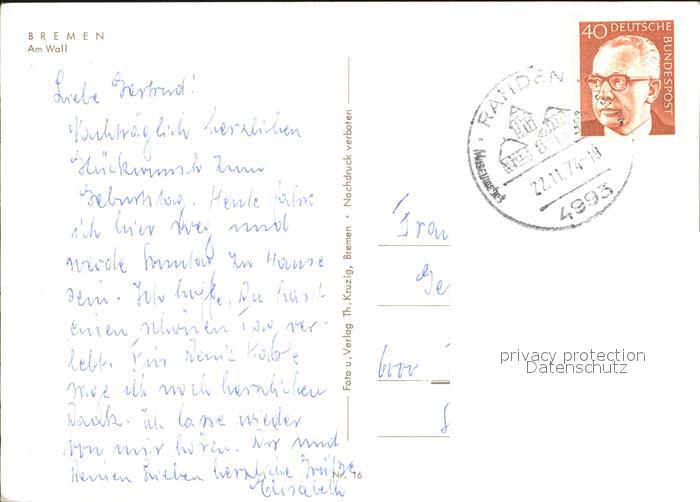 BREMEN
Am Wall
Liebe Gertrud!
Nachträglich herzlichen
Glückwunsch zum
Geburtstag. Heute fahre
ich hier weg und
werde Sonntag zu Hause
sein. Ich hoffe, Du hast
einen schönen Tag ver-
lebt. Für Deine Karte
sage ich noch herzlichen
Dank. Ich lasse wieder
von mir hören. Dir und
Deinen Lieben herzliche Grüße
Elisabeth
Foto u. Verlag Th. Kruzig, Bremen · Nachdruck verboten
Nr. 16
40 DEUTSCHE
BUNDESPOST
RAHDEN
Museumshof
22.11.74-18
4993
Frau
Ge
6000
privacy protection
Datenschutz